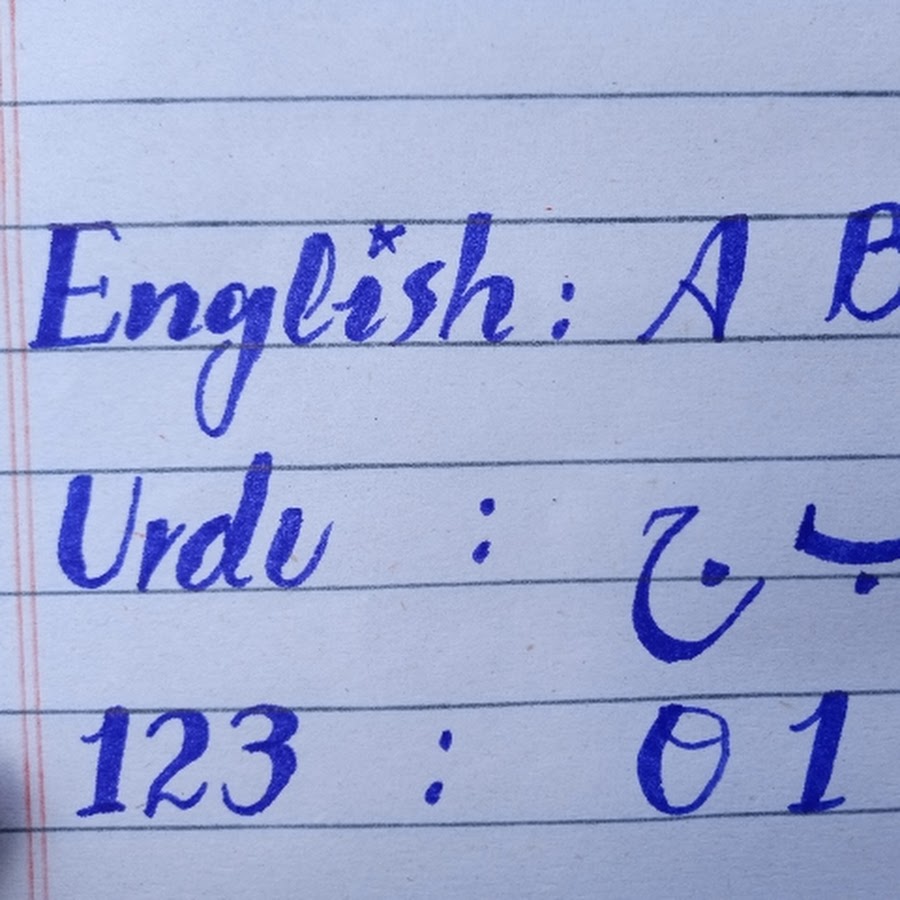 English: A B
Urdu : ب ج
123 : 0 1